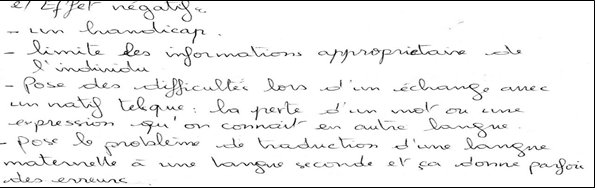 e/ Effet négatif.
- un handicap.
- limite les informations appropriétaire de
l'individu
- Pose des difficultés lors d'un échange avec
un natif telque : la perte d'un mot ou une
expression qu'on connait en autre langue.
- pose le problème de traduction d'une langue
maternelle à une langue seconde et ça donne parfois
des erreurs